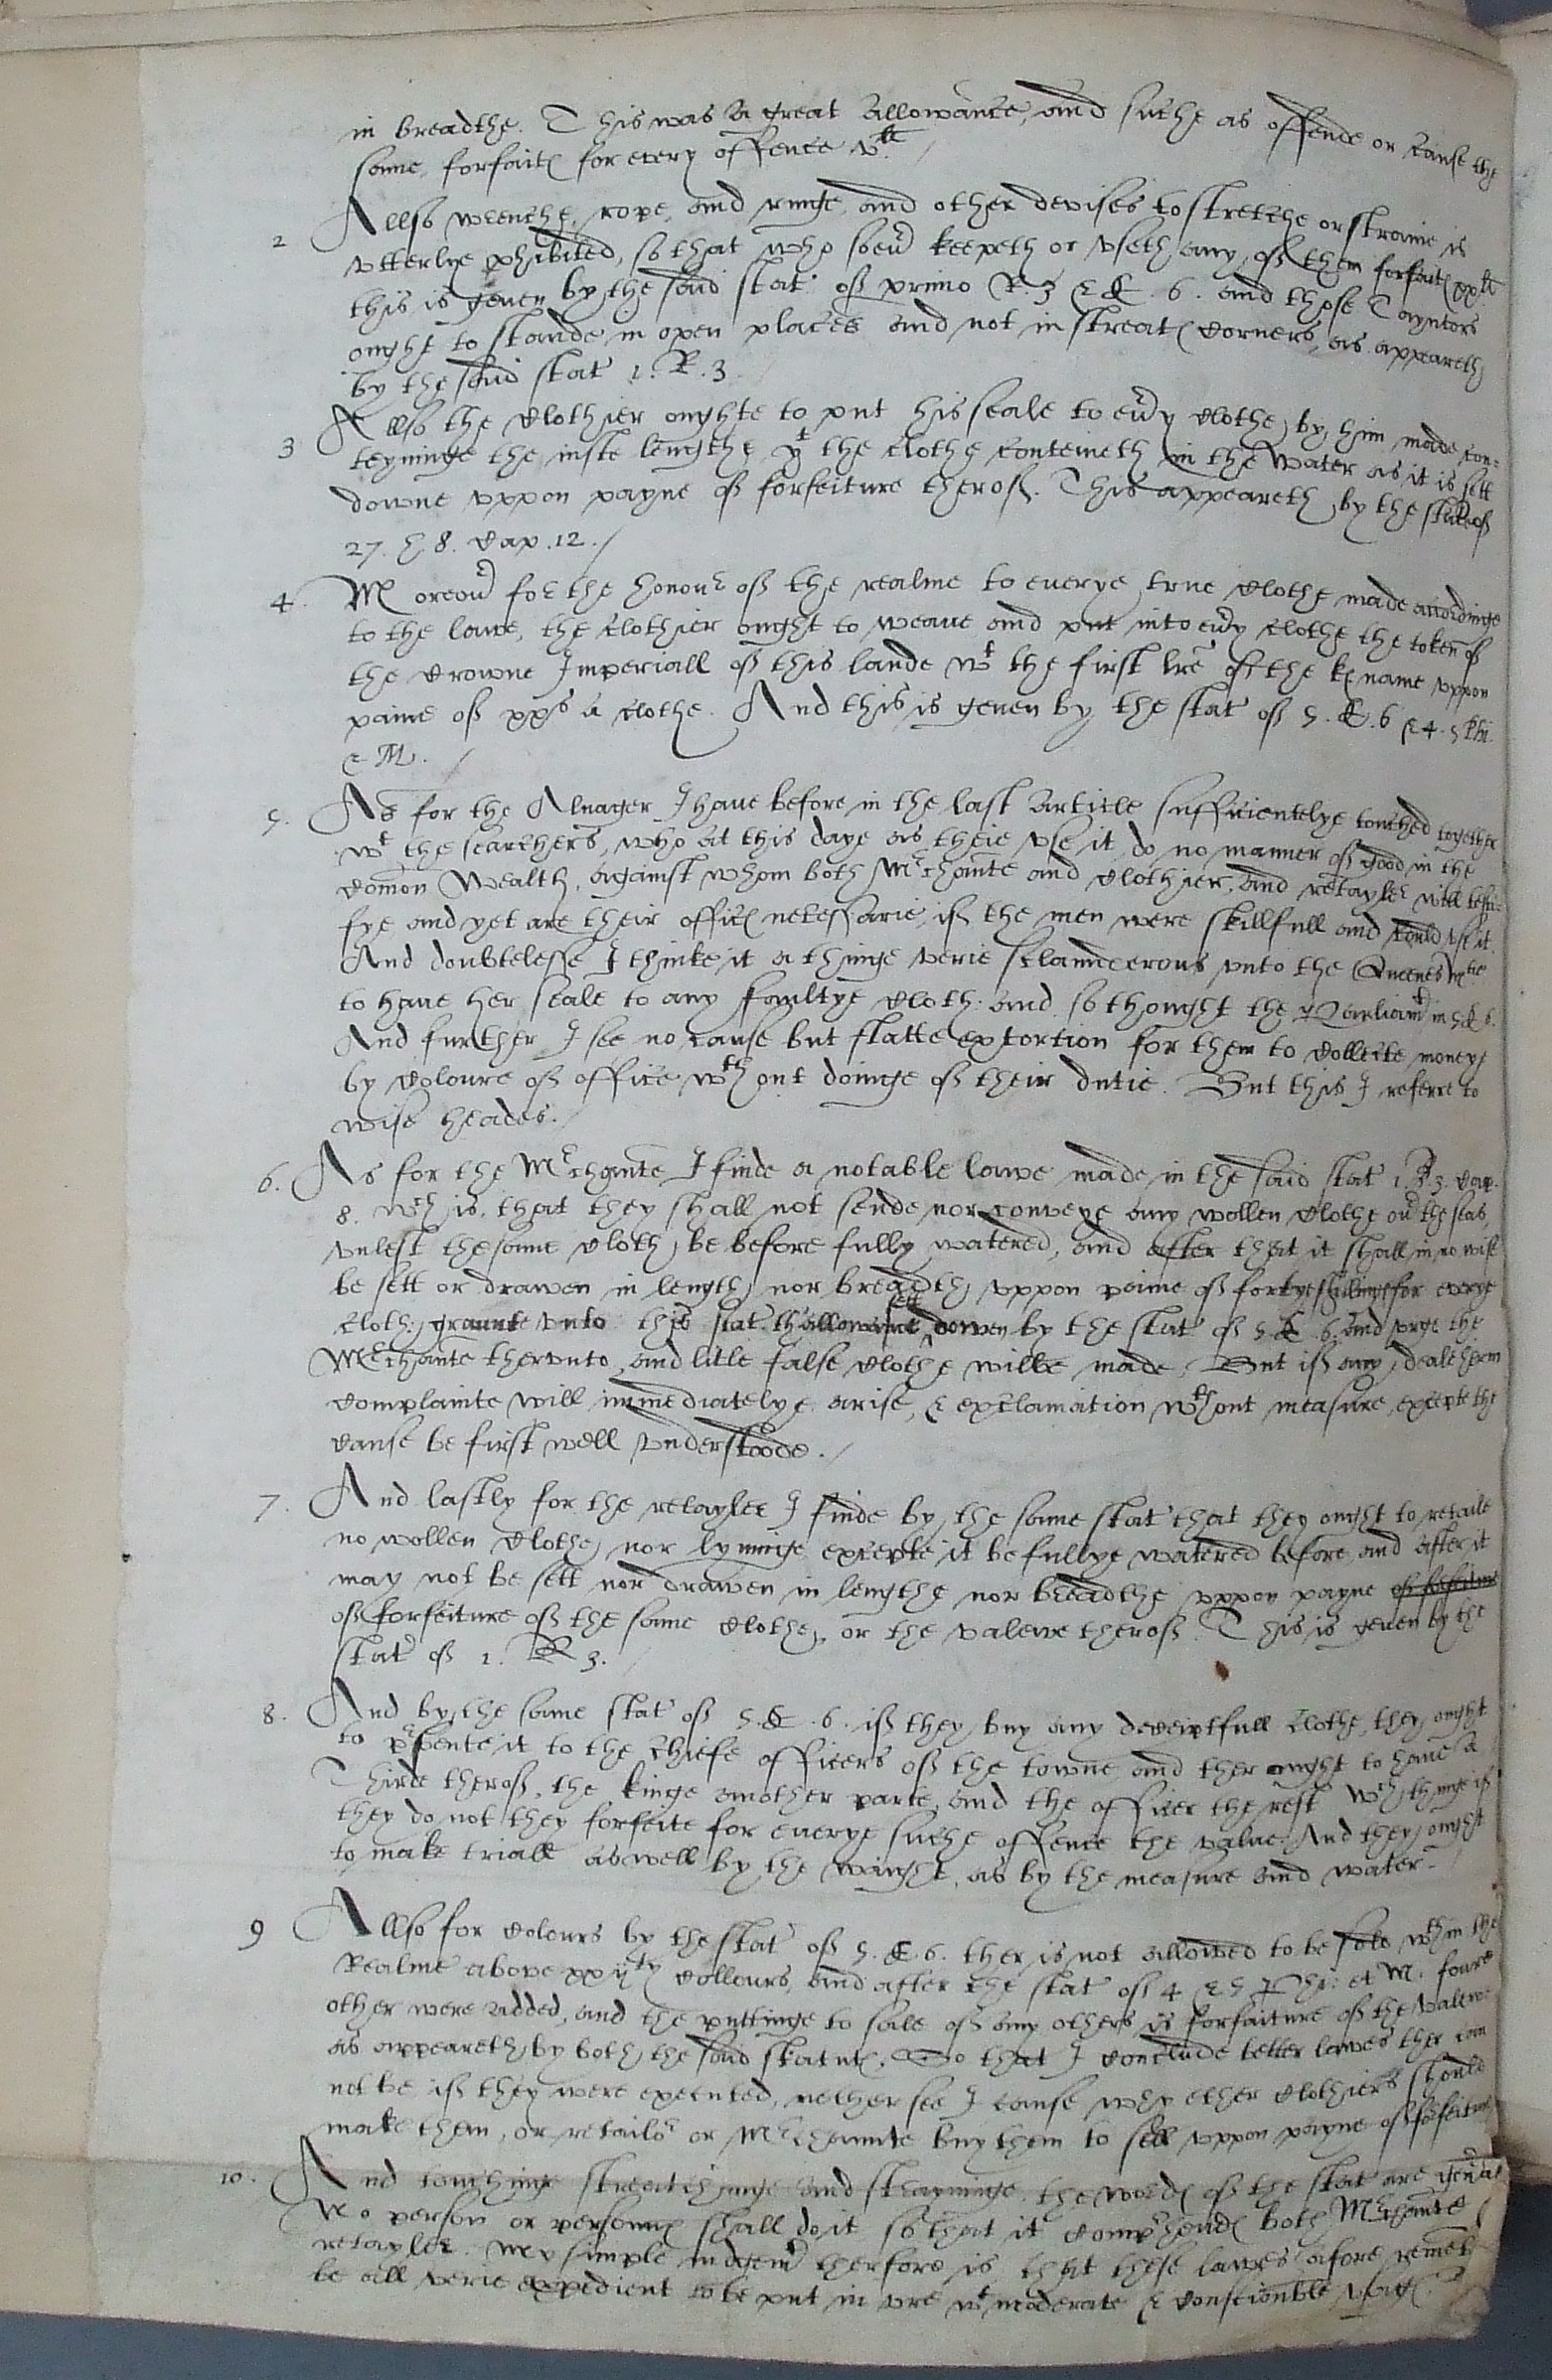 in breadthe. This was a great allowance, and suche as offende or cause the
same, forfaite for every offence v li
2 Allso wrenche, rope, and ringe, and other devises to stretche or straine is
vtterlye phibited, so that who soeu keepeth or vseth any of them forfaite xx li
this is geuen by the said stat of primo R. 3 & E. 6. and those Tayntors
ought to stande in open places and not in streate corners, as appeareth
by the said stat 1. R. 3
3 Allso the clothier oughte to put his seale to eūy clothe by him made con=
teyninge the iuste lengthe yt the clothe conteineth in the water as it is sett
downe vppon payne of forfeiture therof. This appeareth by the stat of
27. H 8. cap. 12. /
4. Moreou for the honour of the realme to euerye true clothe made accordinge
to the lawe, the clothier ought to weaue and put into eūy clothe the token of
the crowne Imperiall of this lande wt the first lre of the k name vppon
paine of xxs a clothe. And this is geuen by the stat of 5. E. 6 & 4. 5 Phi
& M. /
5. As for the Alnager I haue before in the last article sufficientelye touched together
wt the searchers, who at this daye as theie vse it do no manner of good in the
comon Wealth, against whom both Mrchante and clothier, and retayler will testi=
fye and yet are their office necessarie, if the men were skillfull and could vse it.
And doubtelesse I thinke it a thinge verie sclaunderous vnto the Queenes Matie
to haue her seale to any faultye cloth. and so thought the Parliamt in 5 E 6.
And further I see no cause but flatte extortion for them to collecte money
by coloure of office wthout doinge of their dutie. But this I referre to
wise heades. /
6. As for the Mrchante I finde a notable lawe made in the said stat 1. R. 3. cap.
8. wch is, that they shall not sende nor conveye any wollen clothe ou the seas,
vnlest the same cloth be before fully watered, and after that it shall in no wise
be sett or drawen in length nor breadth vppon paine of fortye shillinge for everye
cloth: graunte vnto this stat. thallowance sett down by the stat of 5 E 6. and vrge the
Mrchante thervnto, and litle false clothe wilbe made. But if any deale them
complainte will immediatelye arise, & exclamation wthout measure, excepte the
cause be first well vnderstoode. /
7. And lastly for the retayler I finde by the same stat that they ought to retaile
no wollen clothe, nor lyninge excepte it be fullye watered before and after it
may not be sett nor drawen in lengthe nor breadthe vppon payne of forfeiture
of forfeiture of the same clothe, or the valewe therof. This is geuen by the
stat of 1. R 3.
8. And by the same stat of 5. E. 6. if they buy any deceiptfull clothe, they ought
to psente it to the chiefe officers of the towne and ther ought to haue a
Thirde therof, the kinge another parte, and the officer the rest wch thinge if
they do not they forfeite for euerye suche offence the value. And they ought
to make triall aswell by the waight, as by the measure and water.
9 Allso for colours by the stat of 5. E. 6. ther is not allowed to be sold wthin the
Realme aboue xxijty collours, and after the stat of 4 & 5 Phi: et M. foure
other were added, and the puttinge to sale of any others is forfaiture of the valewe
as appeareth by both the said statute. So that I conclude better lawes ther can
not be if they were executed, nether see I cause why ether clothiers should
make them, or retailor or Mrchaunte buy them to sell vppon payne of forfeiture
10. And touchinge streatchinge and strayninge, the worde of the stat are genal
No person or personne shall do it so that it comphende both Mrchante &
retayler. My simple iudgemt therfore is that these lawes afore remeb
be all verie expedient to be put in vre wt moderate & conscionable vsage.